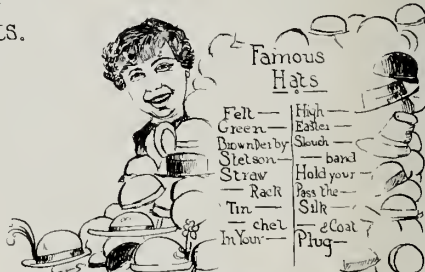 ts.
Famous
Hats
Felt —
Green —
Brown Derby
Stetson —
Straw —
— Rack
Tin —
— chet
In Your —
High —
Easter —
Slouch —
— band
Hold your —
Pass the —
Silk —
— & Coat
Plug —